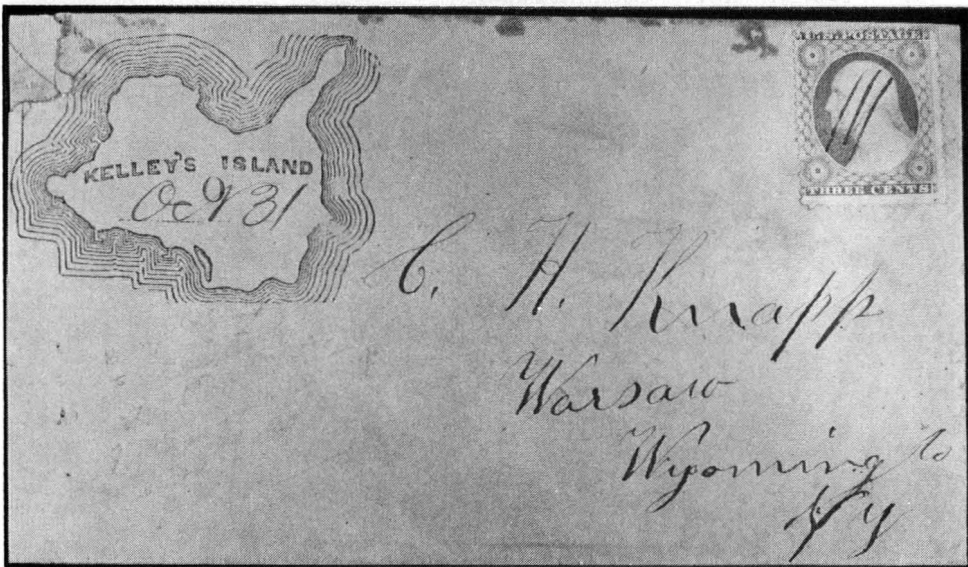 KELLEY'S ISLAND
Oct 31
U.S. POSTAGE
THREE CENTS
C. H. Knapp
Warsaw
Wyoming Co
N Y